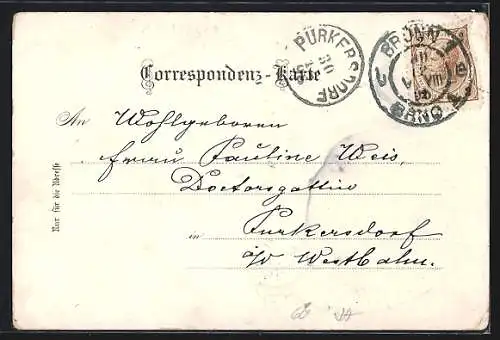 PURKERSDORF
BRÜNN
BRNO
Correspondenz-Karte
An Wohlgeboren
Frau Pauline Weis,
Doctorsgattin
in Purkersdorf
a/d Westbahn.
Nur für die Adresse